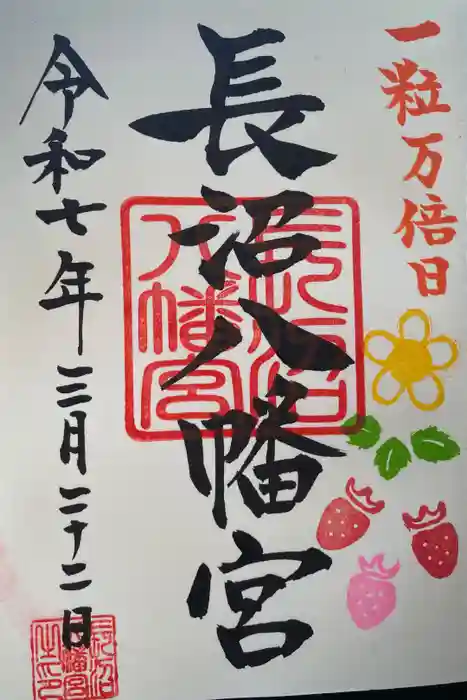 一粒万倍日
長沼八幡宮
令和七年三月二十二日
長沼八幡宮